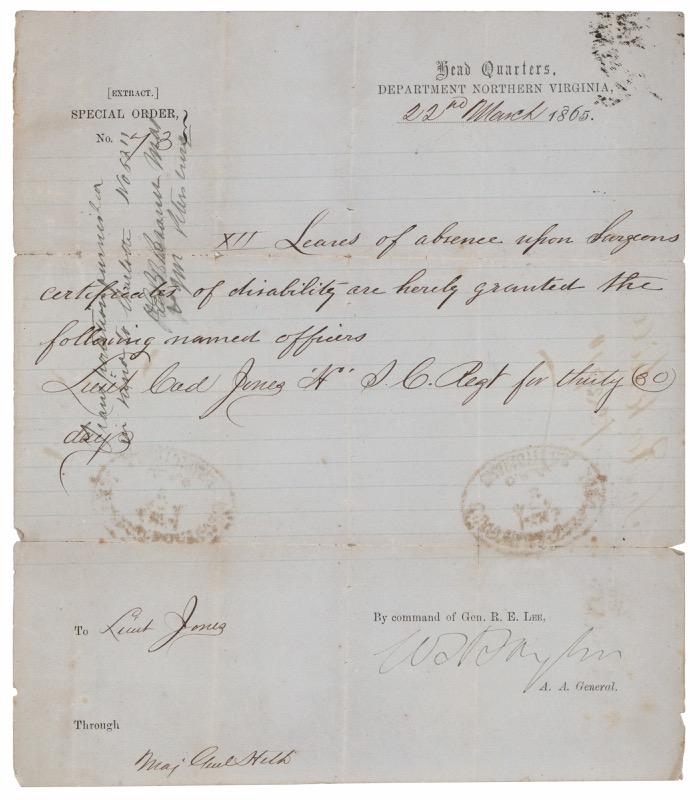 Head Quarters,
DEPARTMENT NORTHERN VIRGINIA,
22nd March 1865.
[EXTRACT.]
SPECIAL ORDER,
No. 73
XII Leaves of absence upon Surgeons
certificates of disability are hereby granted the
following named officers
Lieut Cad Jones "H" S. C. Regt for thirty (30)
days
Transportation furnished
in kind to Charlotte No 5211
To Lieut Jones
By command of Gen. R. E. LEE,
W H Taylor
A. A. General.
Through
Maj Genl Heth